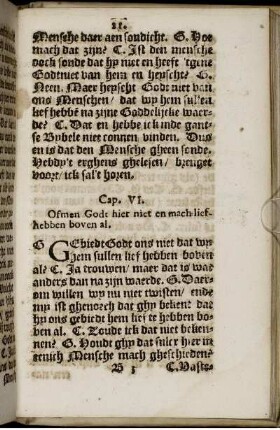 21.
Mensche daer aen sondicht. G. Hoe
mach dat zijn? C. Ist den mensche
oock sonde dat hy niet en heeft 'tgene
Godt niet van hem en heyscht? G.
Neen. Maer heyscht Godt niet van
ons Menschen / dat wy hem sullen
lief hebbē na zijne Goddelijcke waer-
de? C. Dat en hebbe ick inde gant-
se Bybele niet connen vinden. Dus
en is dat den Mensche gheen sonde.
Hebdy't erghens ghelesen / brenget
voort / ick sal't horen.
Cap. VI.
Ofmen Godt hier niet en mach lief-
hebben boven al.
G GEbiedt Godt ons niet dat wy
hem sullen lief hebben boven
al? C. Ja trouwen / maer dat is wat
anders dan na zijn waerde. G. Daer-
om willen wy nu niet twisten / ende
my ist ghenoech dat ghy bekent dat
hy ons gebiedt hem lief te hebben bo-
ven al. C. Zoude ick dat niet beken-
nen? G. Houdt ghy dat sulcx hier in
eenich Mensche mach gheschieden?
B 3 C. Vast-